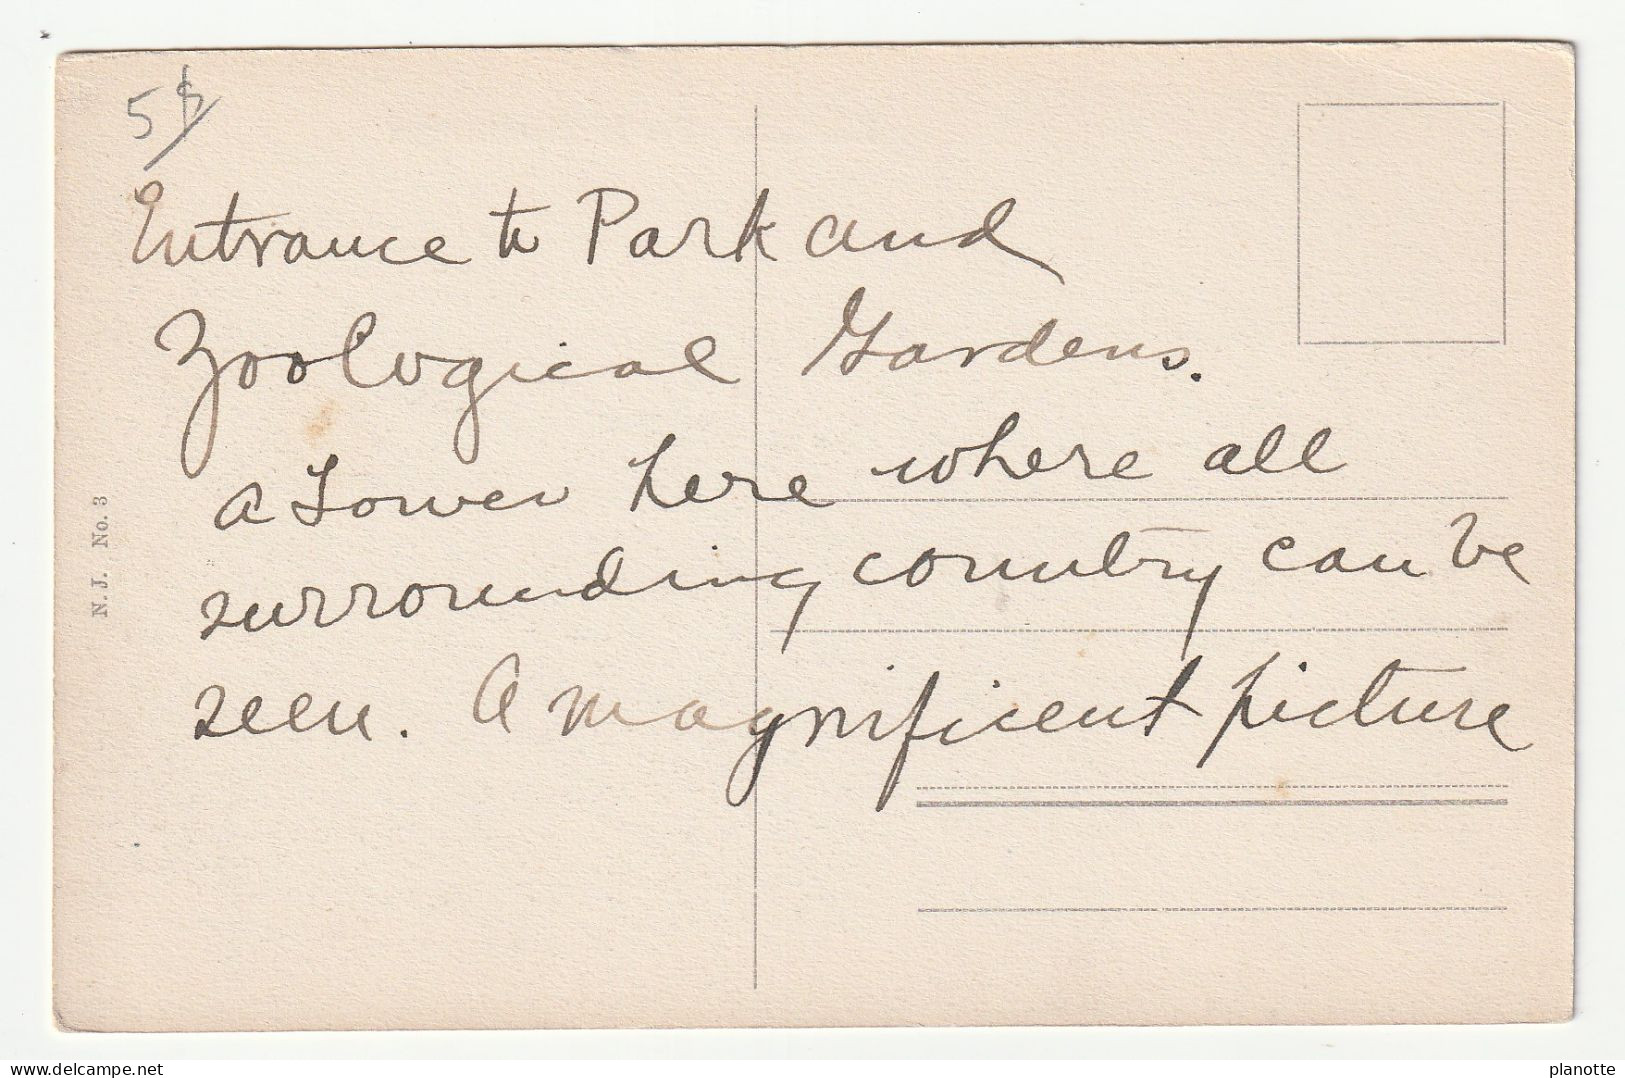 5$
Entrance to Park and
Zoological Gardens.
a Tower here where all
surrounding country can be
seen. A magnificent picture
N. J. No. 3
delcampe.net
planotte